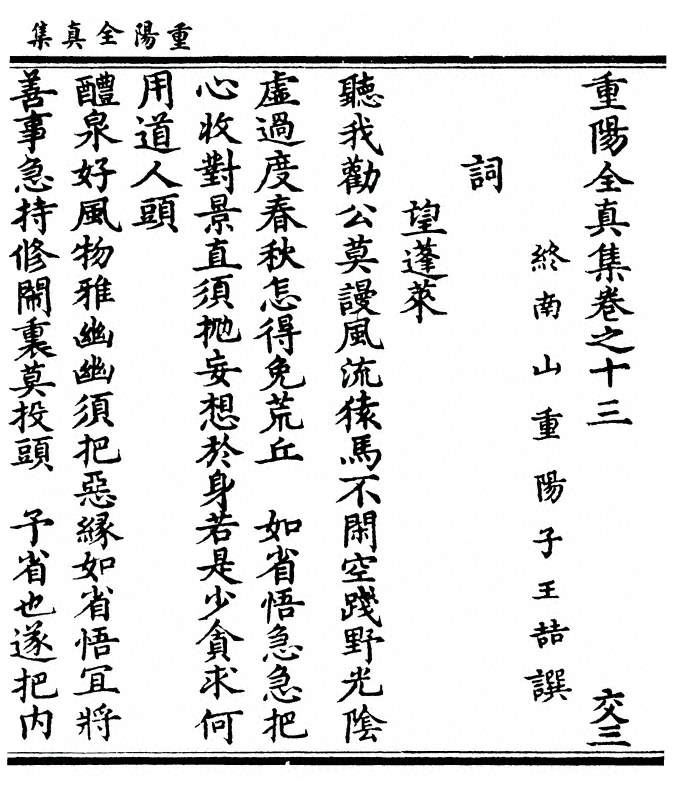 重陽全真集
重陽全真集卷之十三 交三
終南山重陽子王嚞撰
詞
望蓬萊
聽我勸公莫謾風流猿馬不閑空踐野光陰
虛過度春秋怎得免荒丘 如省悟急急把
心收對景直須抛妄想於身若是少貪求何
用道人頭
醴泉好風物雅幽幽須把惡緣如省悟宜將
善事急持修閙裏莫投頭 予省也遂把内